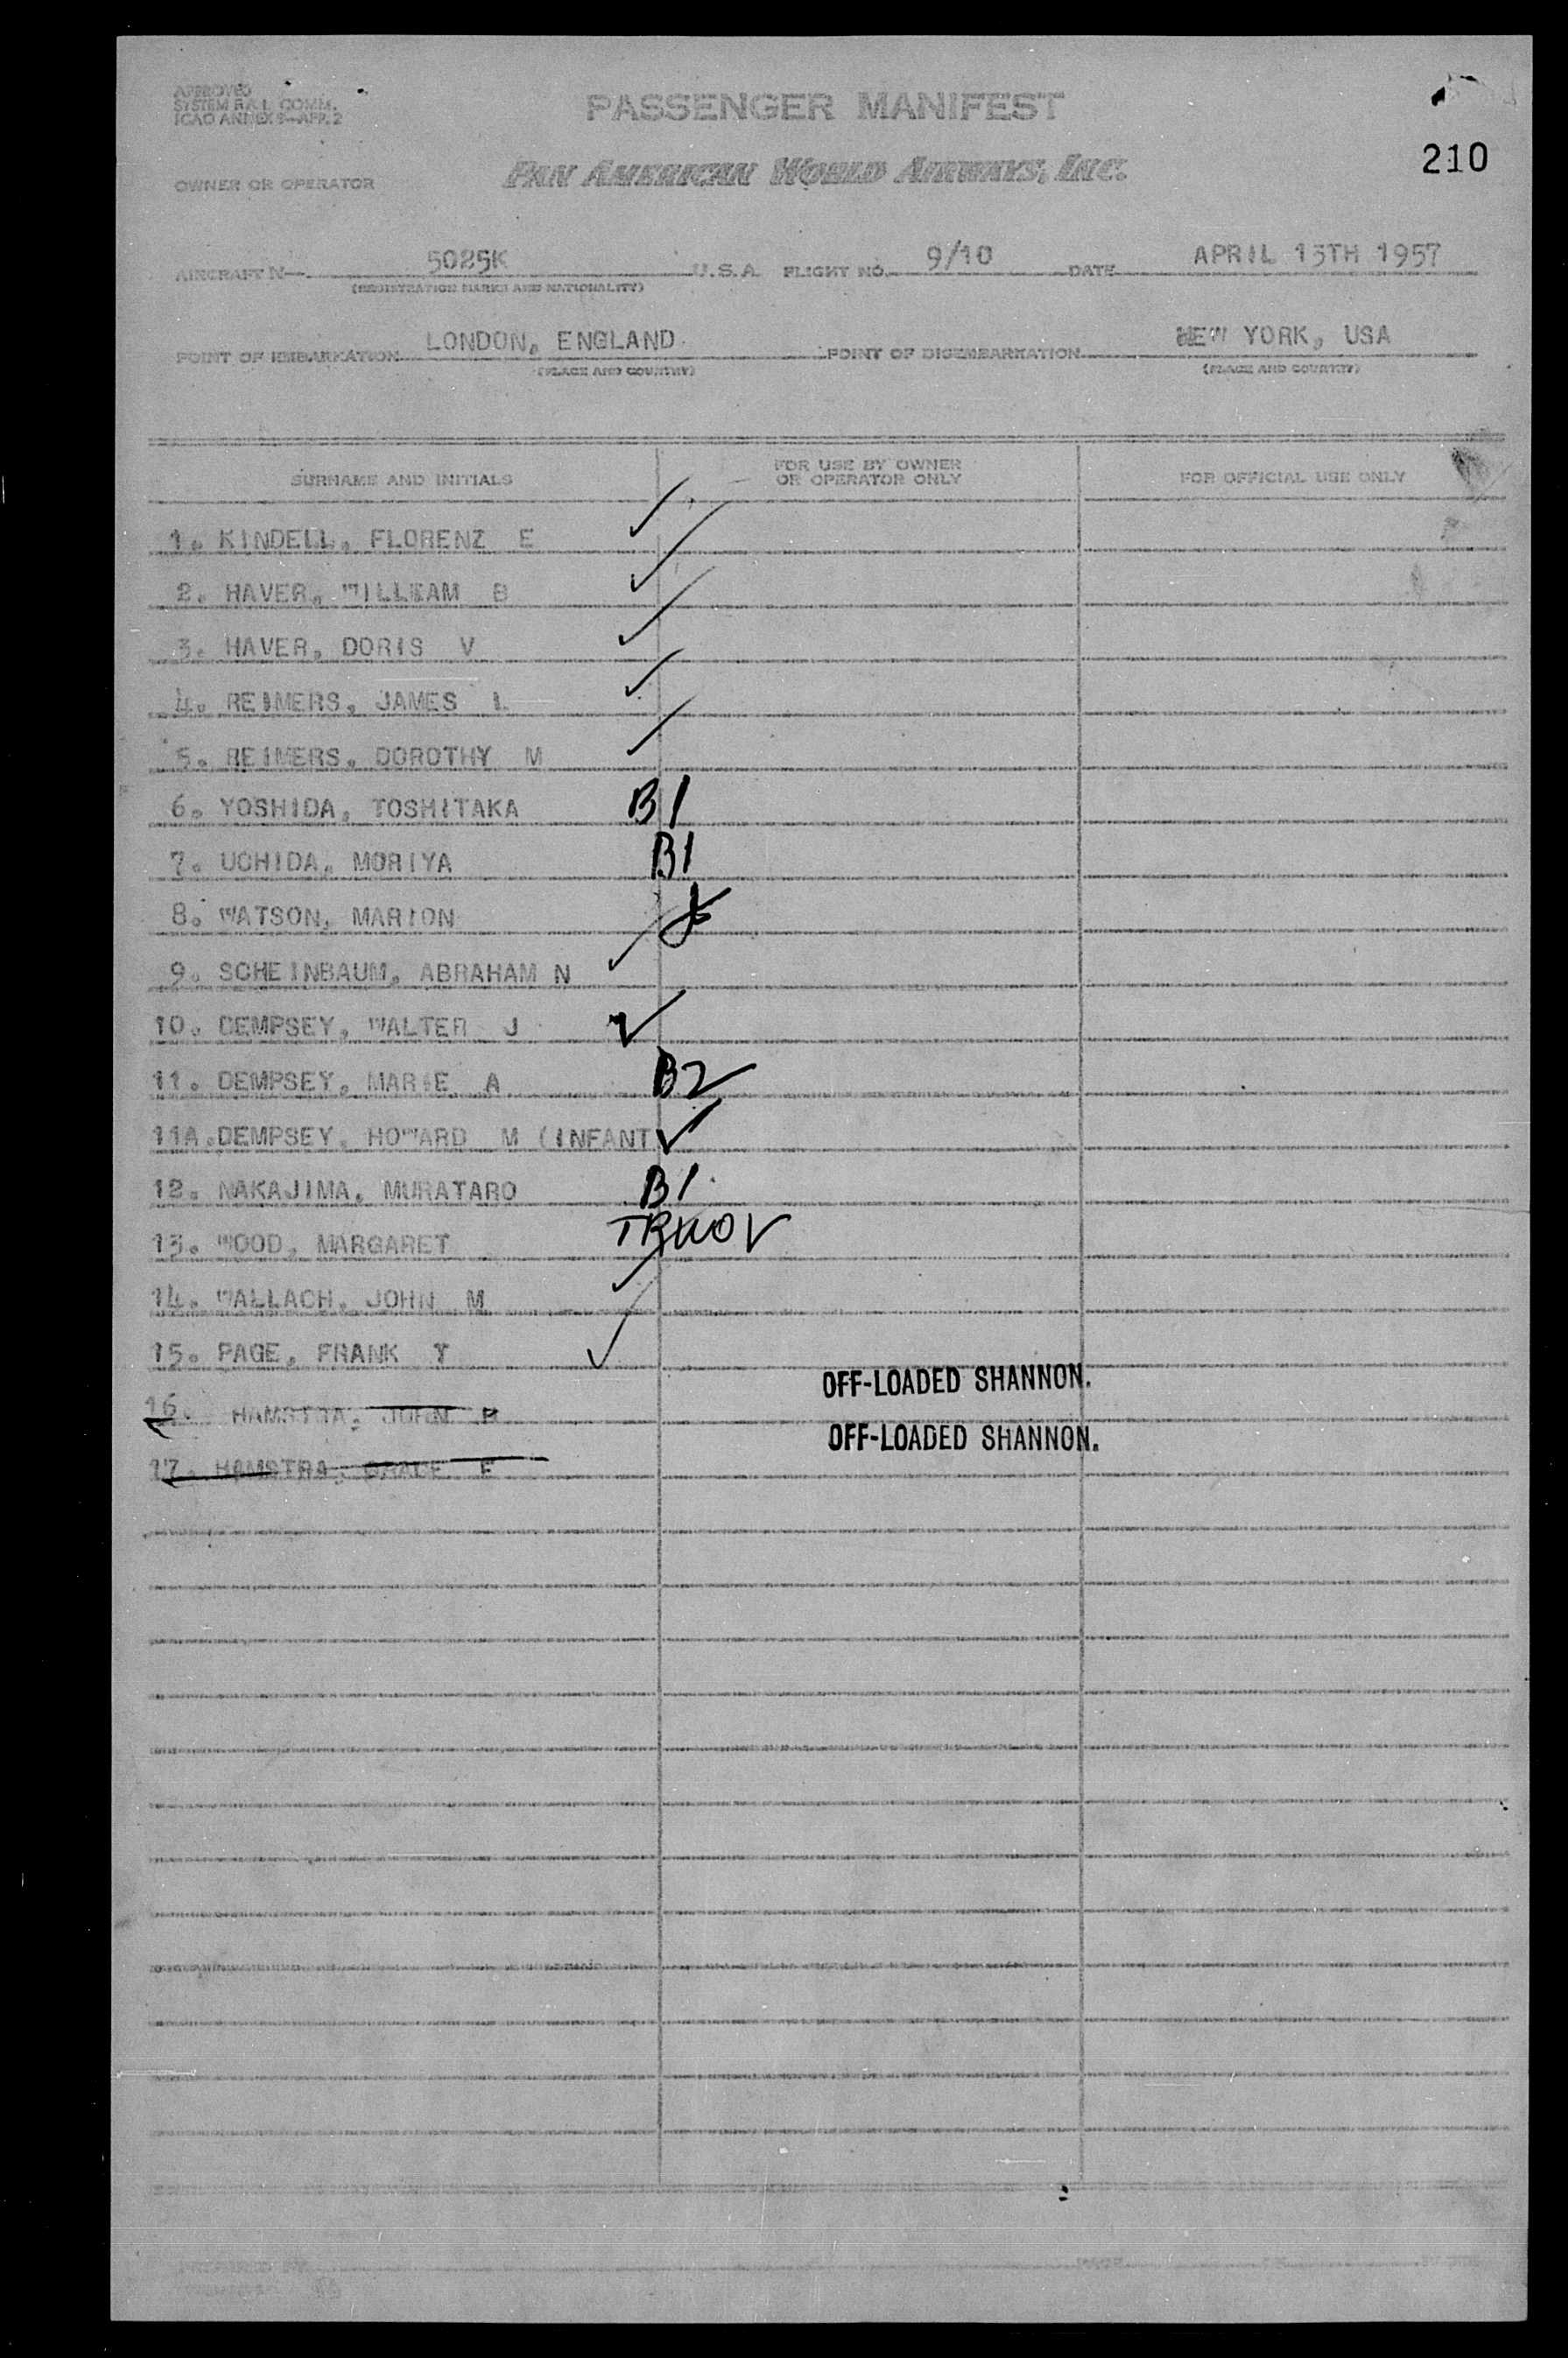 APPROVED
SYSTEM F.A.L. COMM.
ICAO ANNEX 9-APP. 2
PASSENGER MANIFEST
210
OWNER OR OPERATOR
PAN AMERICAN WORLD AIRWAYS, INC.
AIRCRAFT N 5025K U.S.A. FLIGHT NO. 9/10 DATE APRIL 13TH 1957
(REGISTRATION MARKS AND NATIONALITY)
POINT OF EMBARKATION LONDON, ENGLAND POINT OF DISEMBARKATION NEW YORK, USA
(PLACE AND COUNTRY) (PLACE AND COUNTRY)
SURNAME AND INITIALS FOR USE BY OWNER OR OPERATOR ONLY FOR OFFICIAL USE ONLY
1. KINDELL, FLORENZ E ✓
2. HAVER, WILLIAM B ✓
3. HAVER, DORIS V ✓
4. REIMERS, JAMES L ✓
5. REIMERS, DOROTHY M ✓
6. YOSHIDA, TOSHITAKA B1
7. UCHIDA, MORIYA B1
8. WATSON, MARION
9. SCHEINBAUM, ABRAHAM N ✓
10. DEMPSEY, WALTER J ✓
11. DEMPSEY, MARIE A B2
11A. DEMPSEY, HOWARD M (INFANT ✓
12. NAKAJIMA, MURATARO B1
13. WOOD, MARGARET
14. WALLACH, JOHN M ✓
15. PAGE, FRANK T ✓
16. HAMSTRA, JOHN B OFF-LOADED SHANNON.
17. HAMSTRA, GRACE E OFF-LOADED SHANNON.